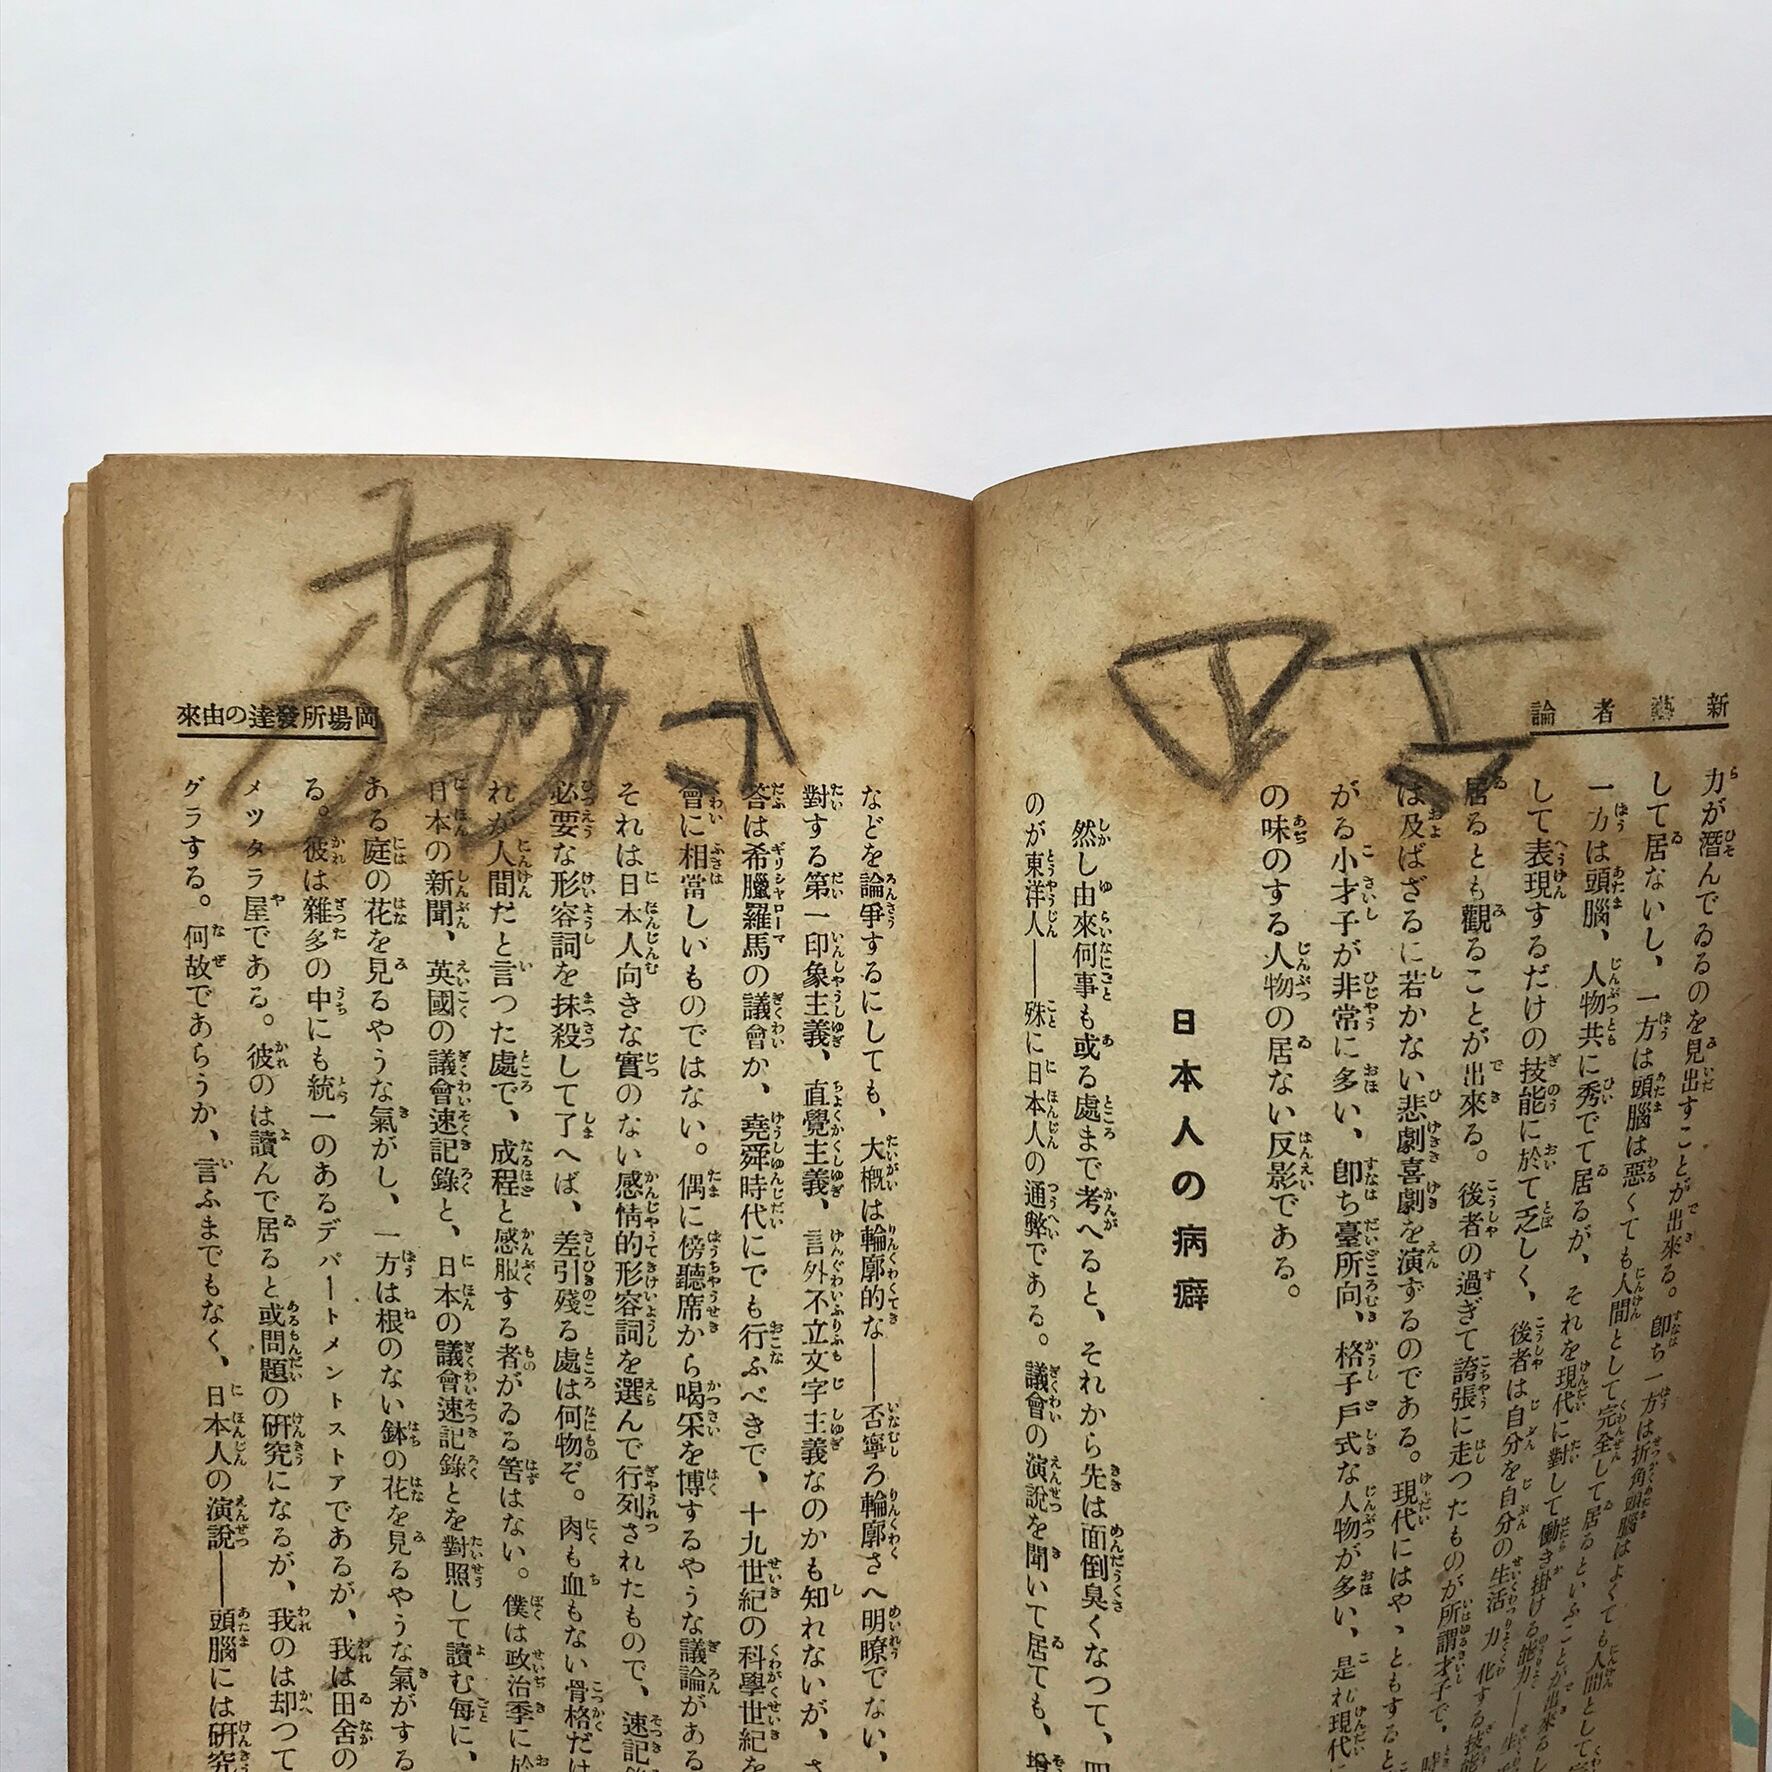 新藝者論
力が潛んでゐるのを見出すことが出來る。卽ち一方は折角頭腦はよくても人間として
して居ないし、一方は頭腦は惡くても人間として完全して居るといふことが出來る
一方は頭腦、人物共に秀でて居るが、それを現代に對して働き掛ける能力
して表現するだけの技能に於て乏しく、後者は自分を自分の生活力化する技能
居るとも觀ることが出來る。後者の過ぎて誇張に走つたものが所謂才子で、
は及ばざるに若かない悲劇喜劇を演ずるのである。現代にはや、ともすると
がる小才子が非常に多い、卽ち臺所向、格子戸式な人物が多い、是れ現代
の味のする人物の居ない反影である。
日本人の病癖
然し由來何事も或る處まで考へると、それから先は面倒臭くなつて、
のが東洋人――殊に日本人の通弊である。議會の演說を聞いて居ても、
岡場所發達の由來
などを論爭するにしても、大槪は輪廓的な――否寧ろ輪廓さへ明瞭でない、
對する第一印象主義、直覺主義、言外不立文字主義なのかも知れないが、さ
答は希臘羅馬の議會か、堯舜時代にでも行ふべきで、十九世紀の科學世紀を
會に相當しいものではない。偶に傍聽席から喝采を博するやうな議論がある
それは日本人向きな實のない感情的形容詞を選んで行列されたもので、速記
必要な形容詞を抹殺して了へば、差引殘る處は何物ぞ。肉も血もない骨格だけ
れが人間だと言つた處で、成程と感服する者がゐる筈はない。僕は政治季に於
日本の新聞、英國の議會速記錄と、日本の議會速記錄とを對照して讀む每に、
ある庭の花を見るやうな氣がし、一方は根のない鉢の花を見るやうな氣がする
る。彼は雜多の中にも統一のあるデパートメントストアであるが、我は田舍の
メツタラ屋である。彼のは讀んで居ると或問題の硏究になるが、我のは却つて
グラする。何故であらうか、言ふまでもなく、日本人の演說――頭腦には硏究